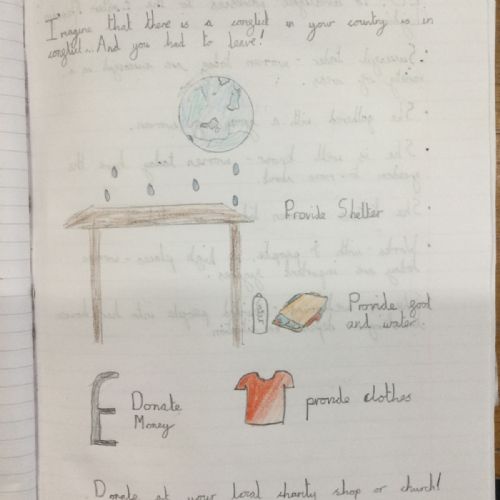 Imagine that there is a conflict in your country is in
conflict...And you had to leave!
Provide Shelter
water
Provide food
and water
£ Donate
Money
provide clothes
Donate at your local charity shop or church!